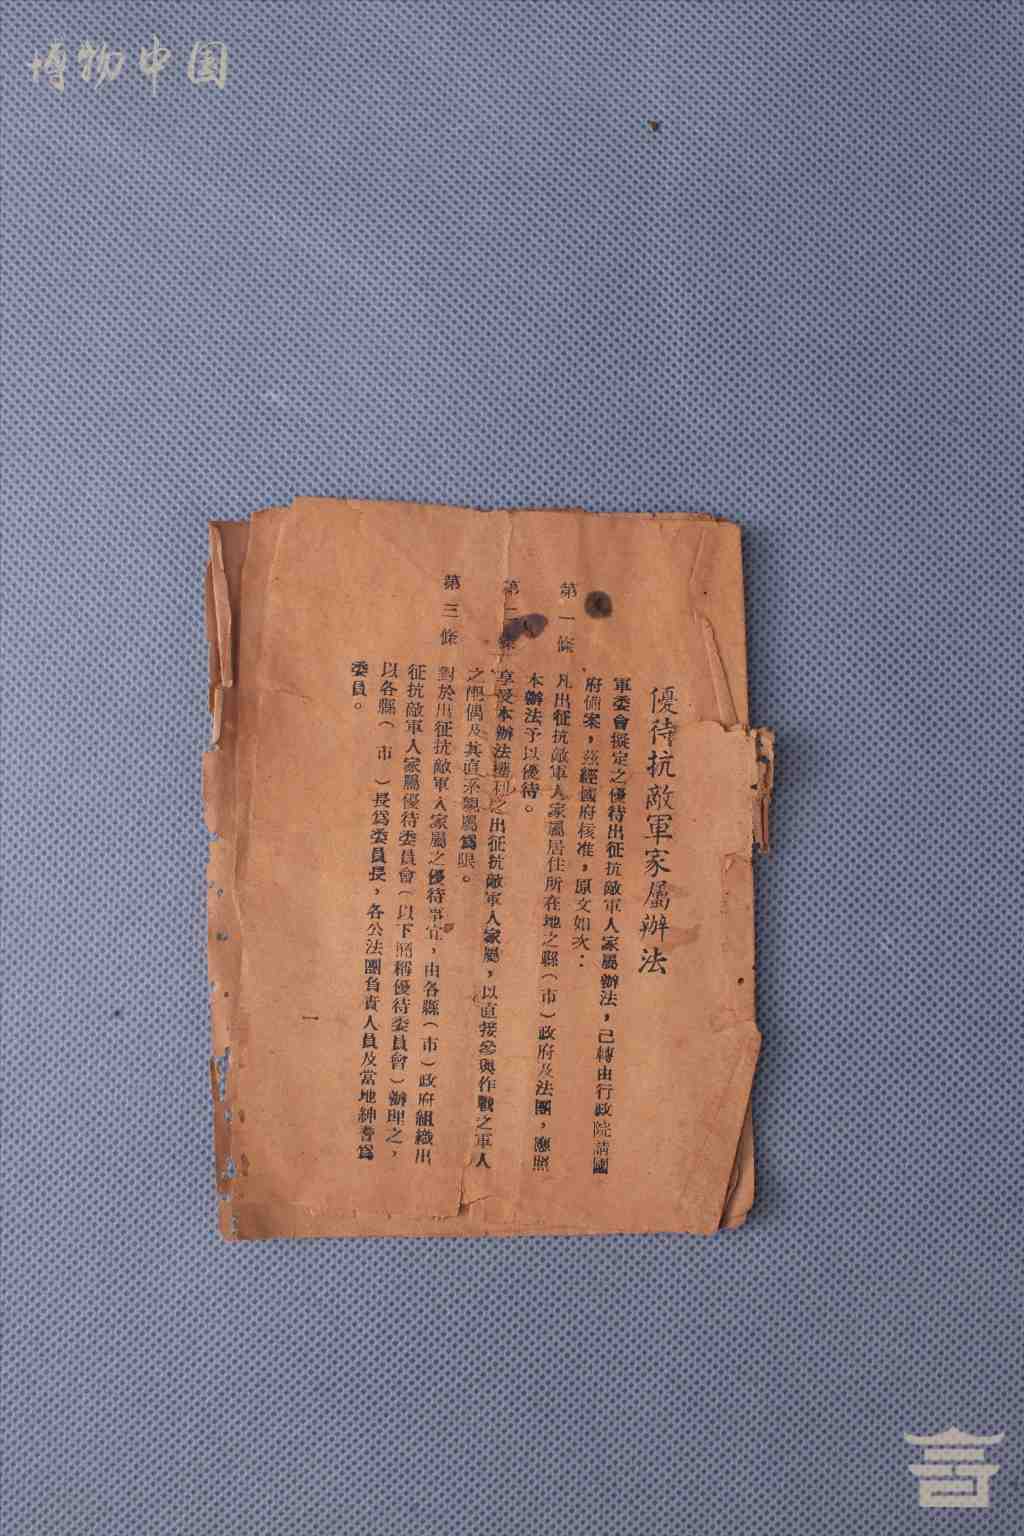 博物中国
優待抗敵軍家屬辦法
軍委會擬定之優待出征抗敵軍人家屬辦法，已轉由行政院請國
府備案，茲經國府核准，原文如次：
第一條 凡出征抗敵軍人家屬居住所在地之縣（市）政府及法團，應照
本辦法予以優待。
第二條 享受本辦法權利之出征抗敵軍人家屬，以直接參與作戰之軍人
之配偶及其直系親屬爲限。
第三條 對於出征抗敵軍人家屬之優待事宜，由各縣（市）政府組織出
征抗敵軍人家屬優待委員會（以下簡稱優待委員會）辦理之，
以各縣（市）長爲委員長，各公法團負責人員及當地紳耆爲
委員。
一